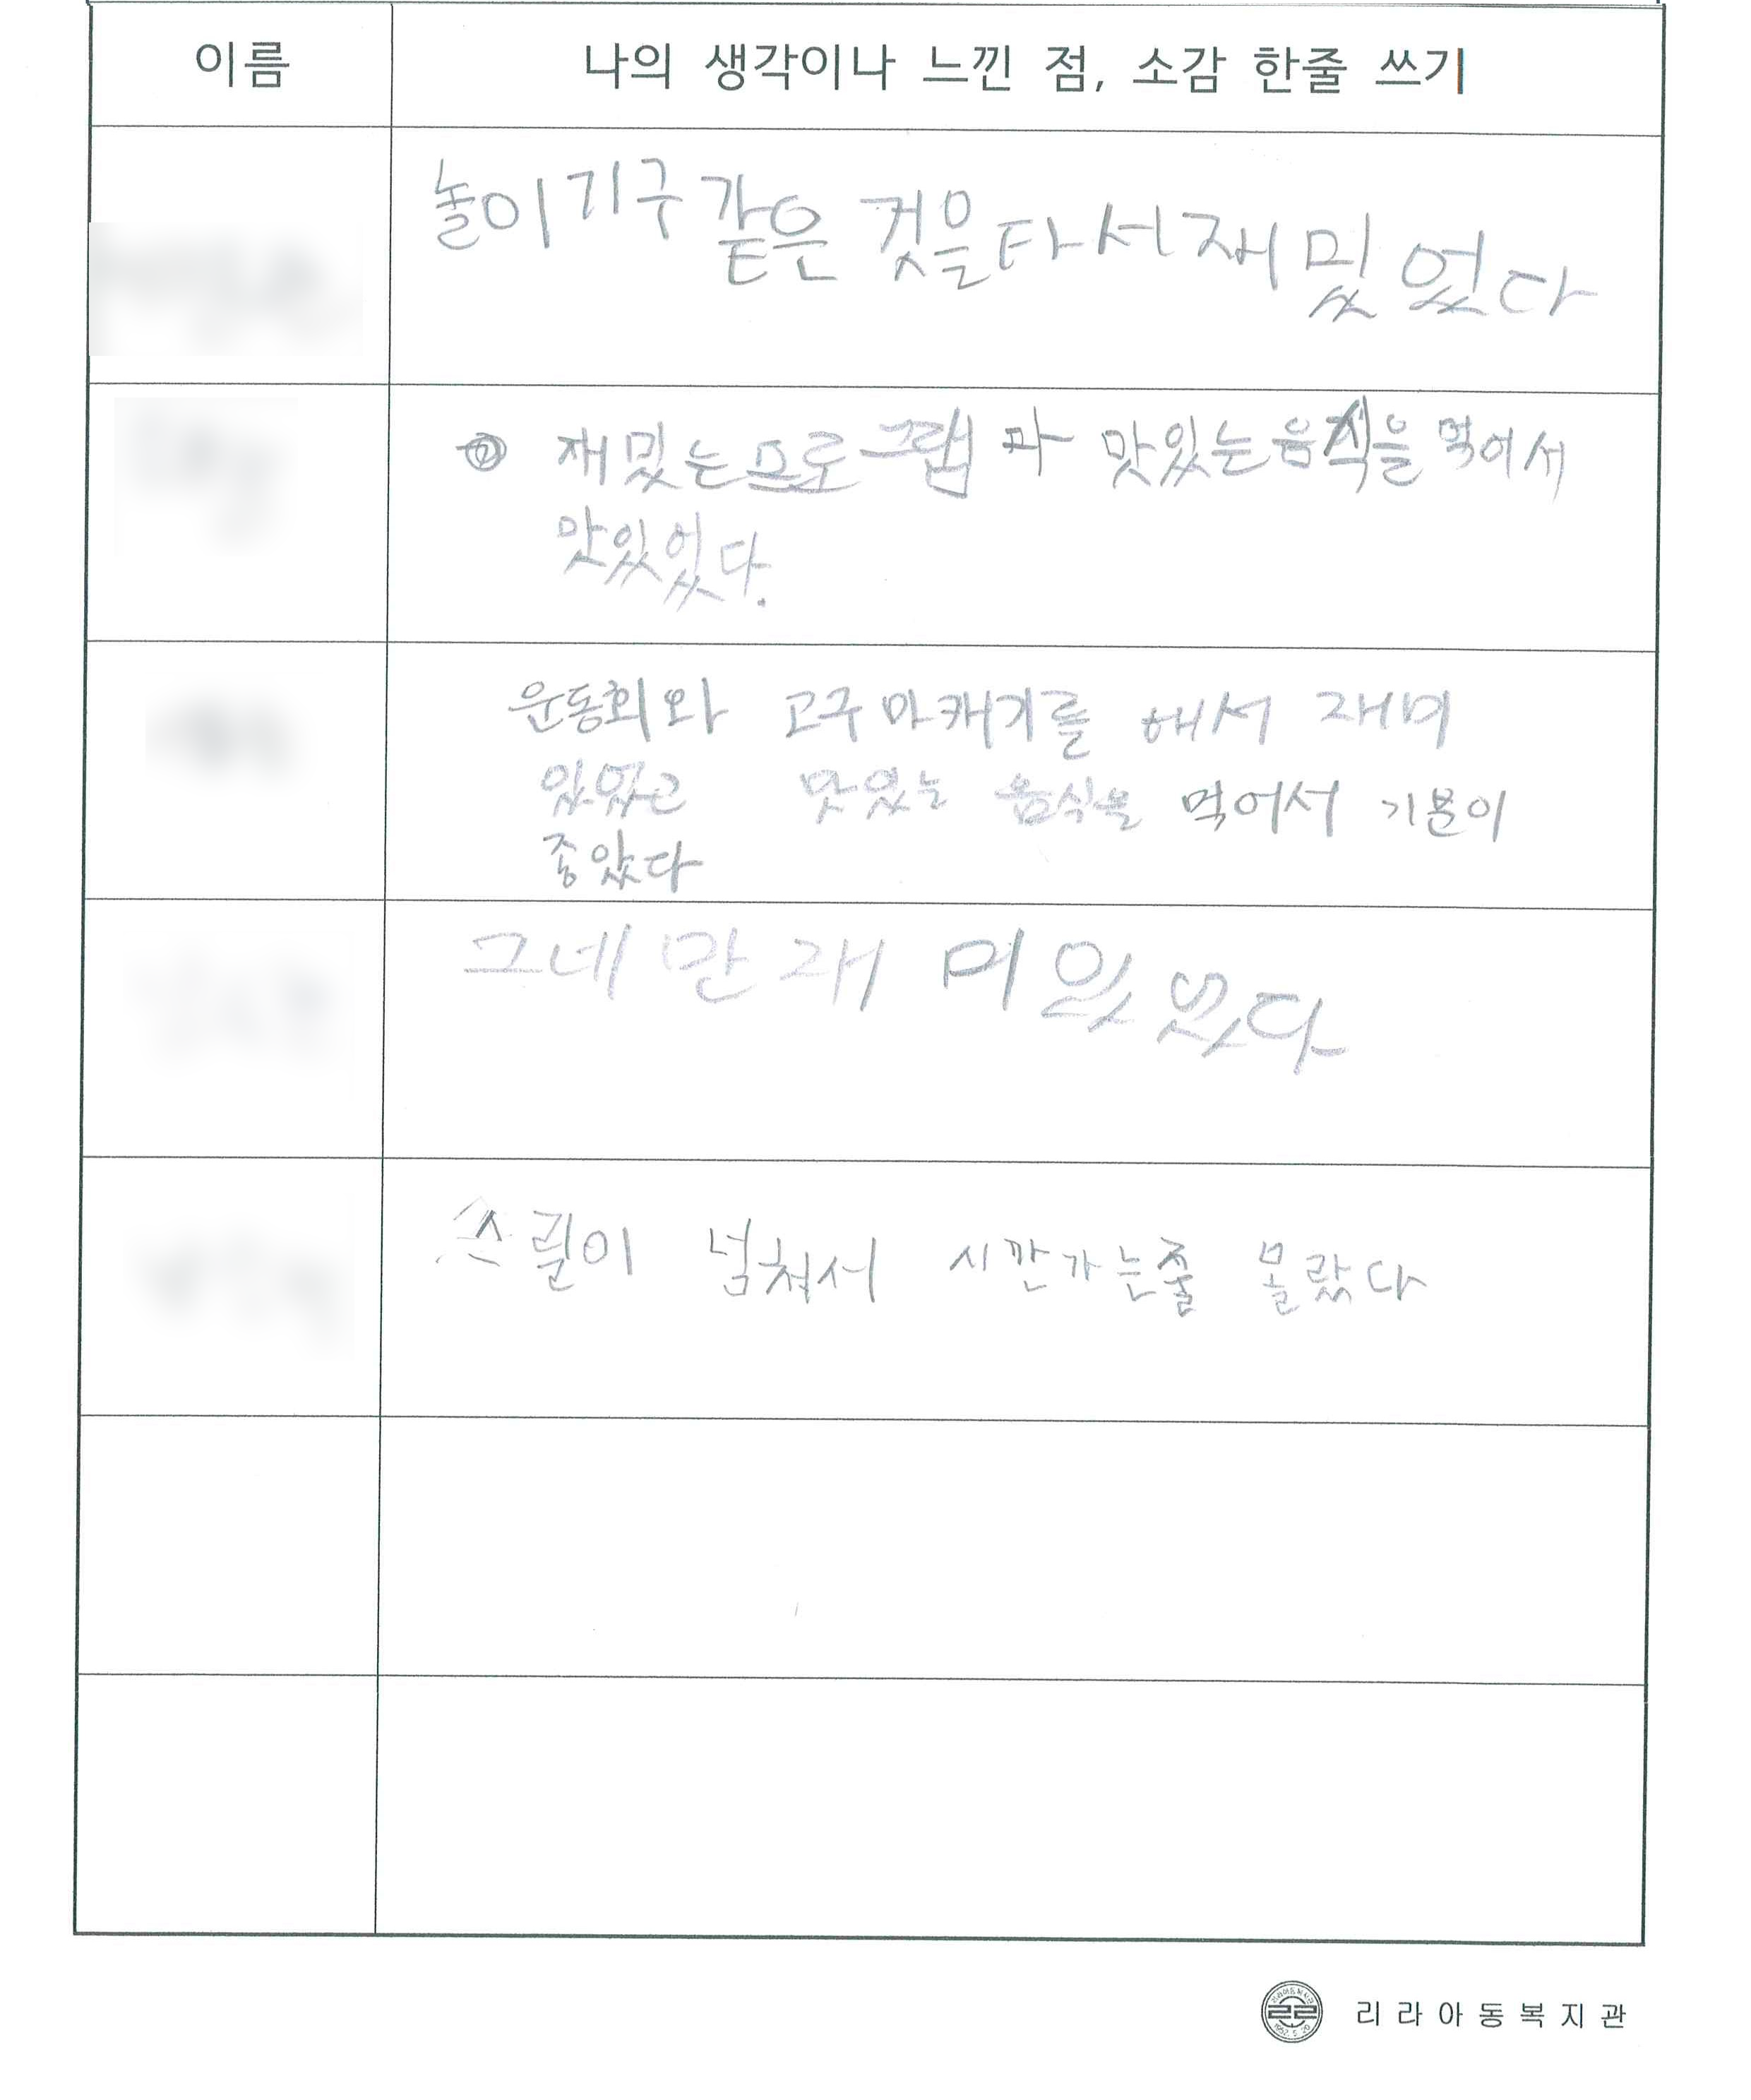 이름 나의 생각이나 느낀 점, 소감 한줄 쓰기
놀이기구같은 것을타서재밌었다
재밌는프로그램과 맛있는음식을 먹어서
맛있었다.
운동회와 고구마캐기를 해서 재미
있었고 맛있는 음식을 먹어서 기분이
좋았다
그네만재미있었다
쓰릴이 넘쳐서 시간가는줄 몰랐다
리라아동복지관